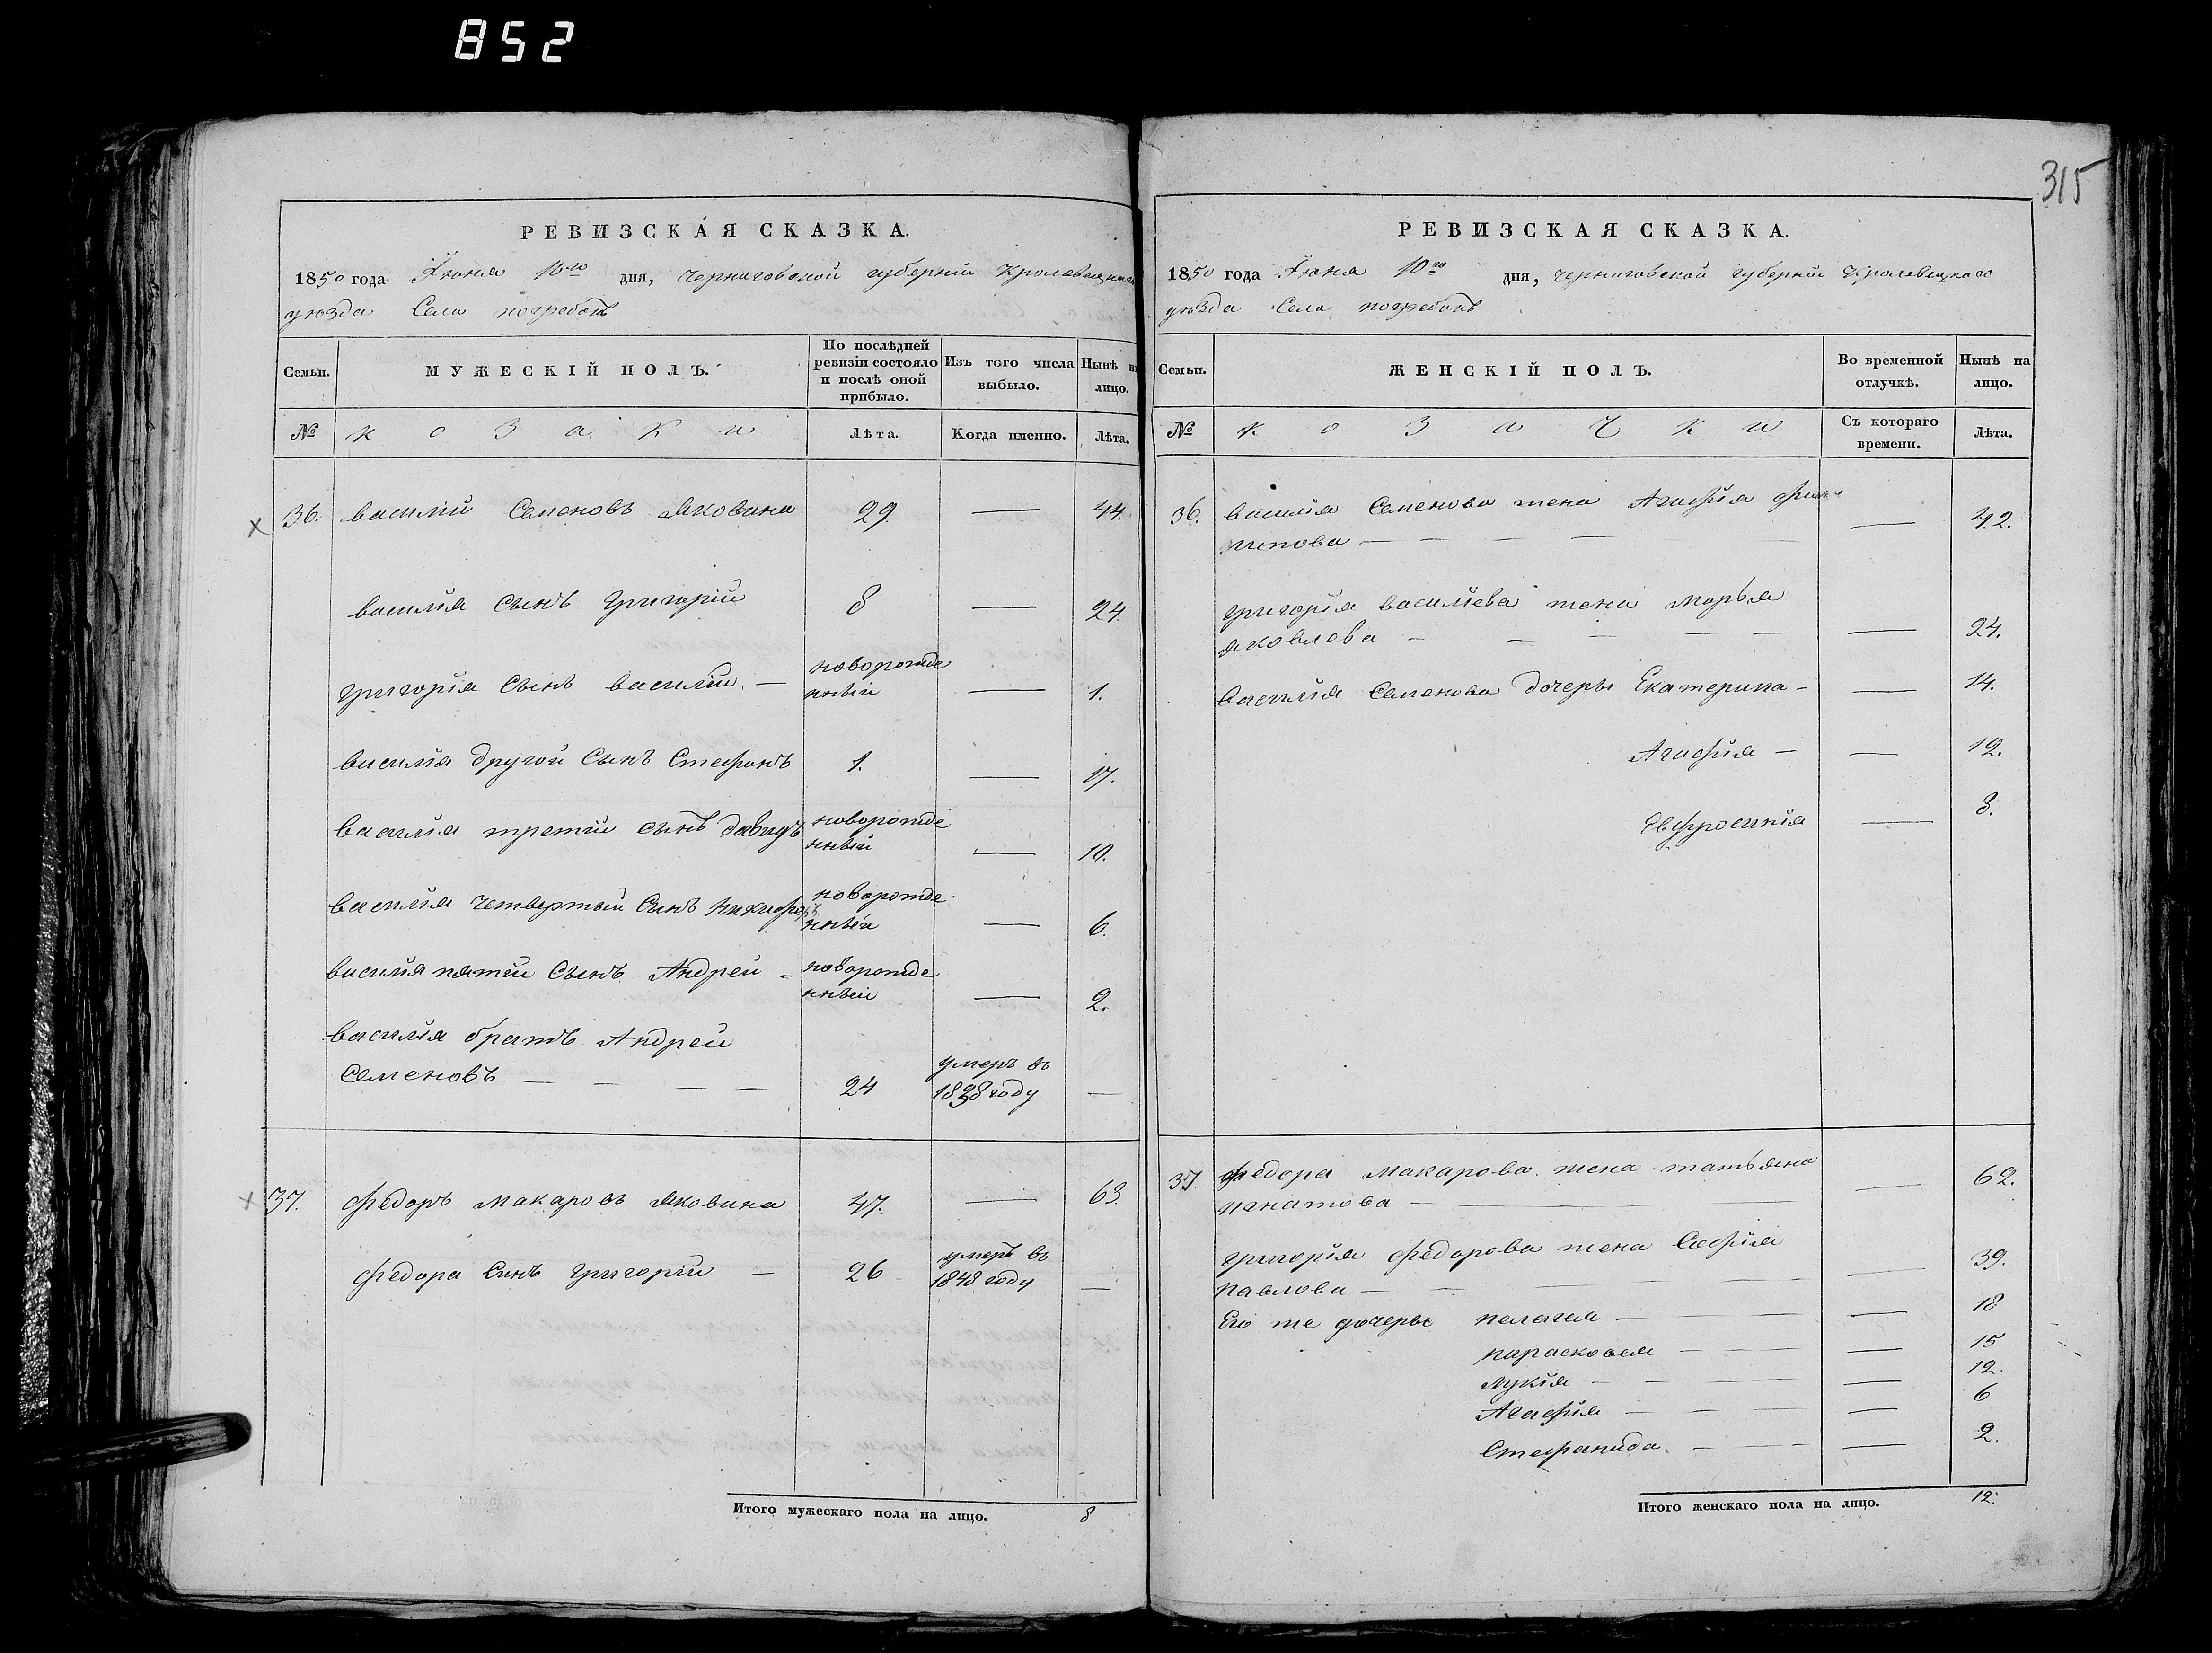 852
315
РЕВИЗСКАЯ СКАЗКА.
1850 года Іюня 10го дня, Черниговской губерніи Кролевецкаго
уѣзда Села погребокъ
Семьи.
МУЖЕСКІЙ ПОЛЪ.
По послѣдней
ревизіи состояло
и послѣ оной
прибыло.
Изъ того числа
выбыло.
Нынѣ на
лицо.
№
козаки
Лѣта.
Когда именно.
Лѣта.
36. василій Семеновъ Яковина 29. — 44.
василія Сынъ Григорій 8 — 24.
григорія Сынъ василій — новорожде
нный — 1.
василія другой Сынъ Стефанъ 1. — 17.
василія третій сынъ давидъ новорожде
нный — 10.
василія четвертый Сынъ Никифоръ новорожде
нный — 6.
василія пятій Сынъ Андрей — новорожде
нный — 2.
василія братъ Андрей
Семеновъ — — — — 24 умеръ въ
1838 году —
37. федоръ макаровъ яковина 47. — 63.
федора Синъ григорій — 26 умеръ въ
1848 году —
Итого мужескаго пола на лицо. 8
РЕВИЗСКАЯ СКАЗКА.
1850 года Іюня 10го дня, черниговской губерніи Кролевецкаго
уѣзда Села погребокъ
Семьи.
ЖЕНСКІЙ ПОЛЪ.
Во временной
отлучкѣ.
Нынѣ на
лицо.
№
козачки
Съ котораго
времени.
Лѣта.
36. василія Семенова жена Агафія фили
пова — — — — — 42.
григорія василіева жена марья
яковлева — — — — — — 24.
василія Семенова дочеры Екатерина — — 14.
Агафія — — 12.
Евфросинія — 8.
37. федора макарова жена татьяна
игнатова — — — 62.
григорія федорова жена Софія
павлова — — — 39.
Его же дочеры пелагея — — — 18
парасковея — — — 15
лукія — — — — 12.
Агафія — — — — 6
Стефанида. — — — — 2.
Итого женскаго пола на лицо. 12.